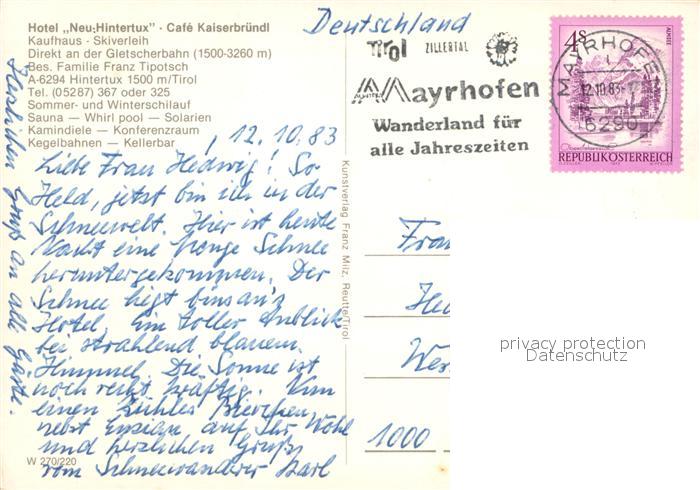 Hotel „Neu-Hintertux" · Café Kaiserbründl
Kaufhaus · Skiverleih
Direkt an der Gletscherbahn (1500-3260 m)
Bes. Familie Franz Tipotsch
A-6294 Hintertux 1500 m/Tirol
Tel. (05287) 367 oder 325
Sommer- und Winterschilauf
Sauna — Whirl pool — Solarien
Kamindiele — Konferenzraum
Kegelbahnen — Kellerbar
, 12.10.83
Liebe Frau Hedwig! So
Held, jetzt bin ich in der
Schneewelt. Hier ist heute
Nacht eine Menge Schnee
heruntergekommen. Der
Schnee liegt bins an's
Hotel, ein toller Anblick
bei strahlend blauem
Himmel. Die Sonne ist
noch recht kräftig. Nun
einen kühles Bierchen
nebst Enzian auf Ihr Wohl
und herzlichen Gruß
vom Schneewanderer Karl
Herzlichen Gruß an alle Gäste.
W 270/220
Kunstverlag Franz Milz, Reutte/Tirol
Deutschland
Tirol ZILLERTAL
Mayrhofen
Wanderland für
alle Jahreszeiten
MAYRHOFEN
12.10.83
6290
4S
ALMSEE
REPUBLIK ÖSTERREICH
Frau
Hed
Wer
1000
privacy protection
Datenschutz